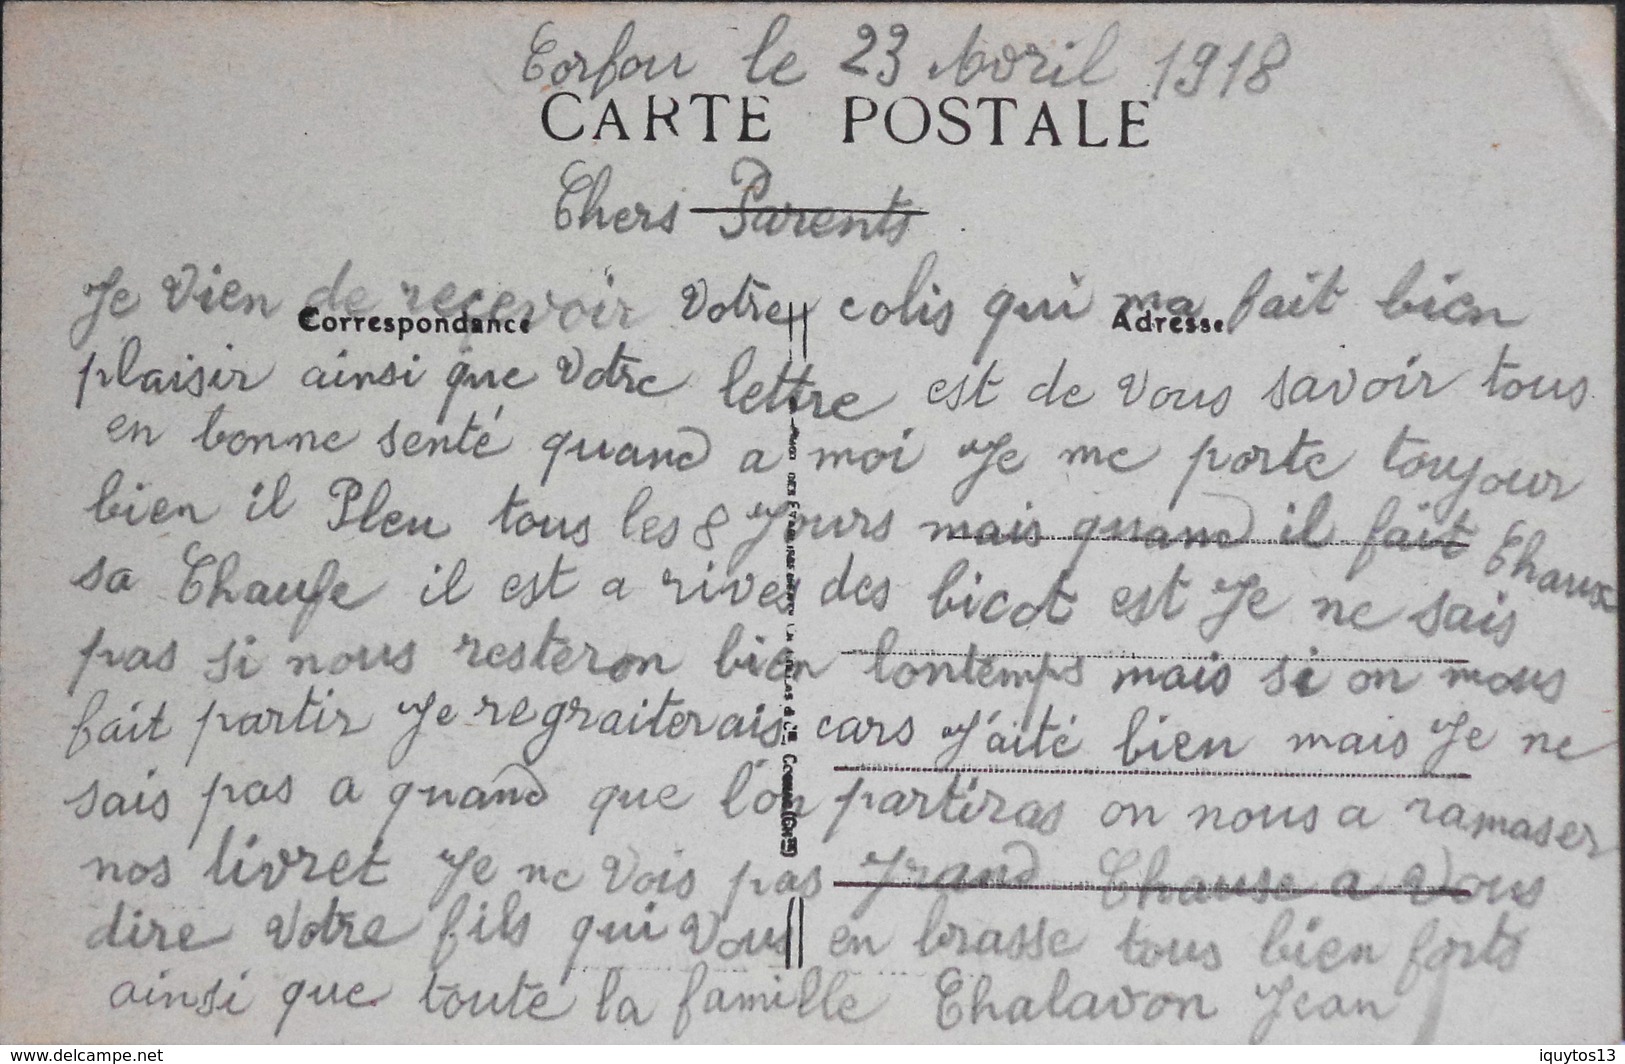 Corfou le 23 Avril 1918
CARTE POSTALE
Chers Parents
Je vien de recevoir votre colis qui ma fait bien
Correspondance
Adresse
plaisir ainsi que votre lettre est de vous savoir tous
en bonne senté quand a moi Je me porte toujour
bien il Pleu tous les 8 Jours mais quand il fait Chaux
sa Chaufe il est a rives des bicot est Je ne sais
pas si nous resteron bien lontemps mais si on nous
fait partir Je regraiterais cars J'aité bien mais Je ne
sais pas a quand que l'on partiras on nous a ramaser
nos livret Je ne vois pas grand Chause a vous
dire votre fils qui vous en brasse tous bien forts
ainsi que toute la famille Chalavon Jean
delcampe.net
iquytos13